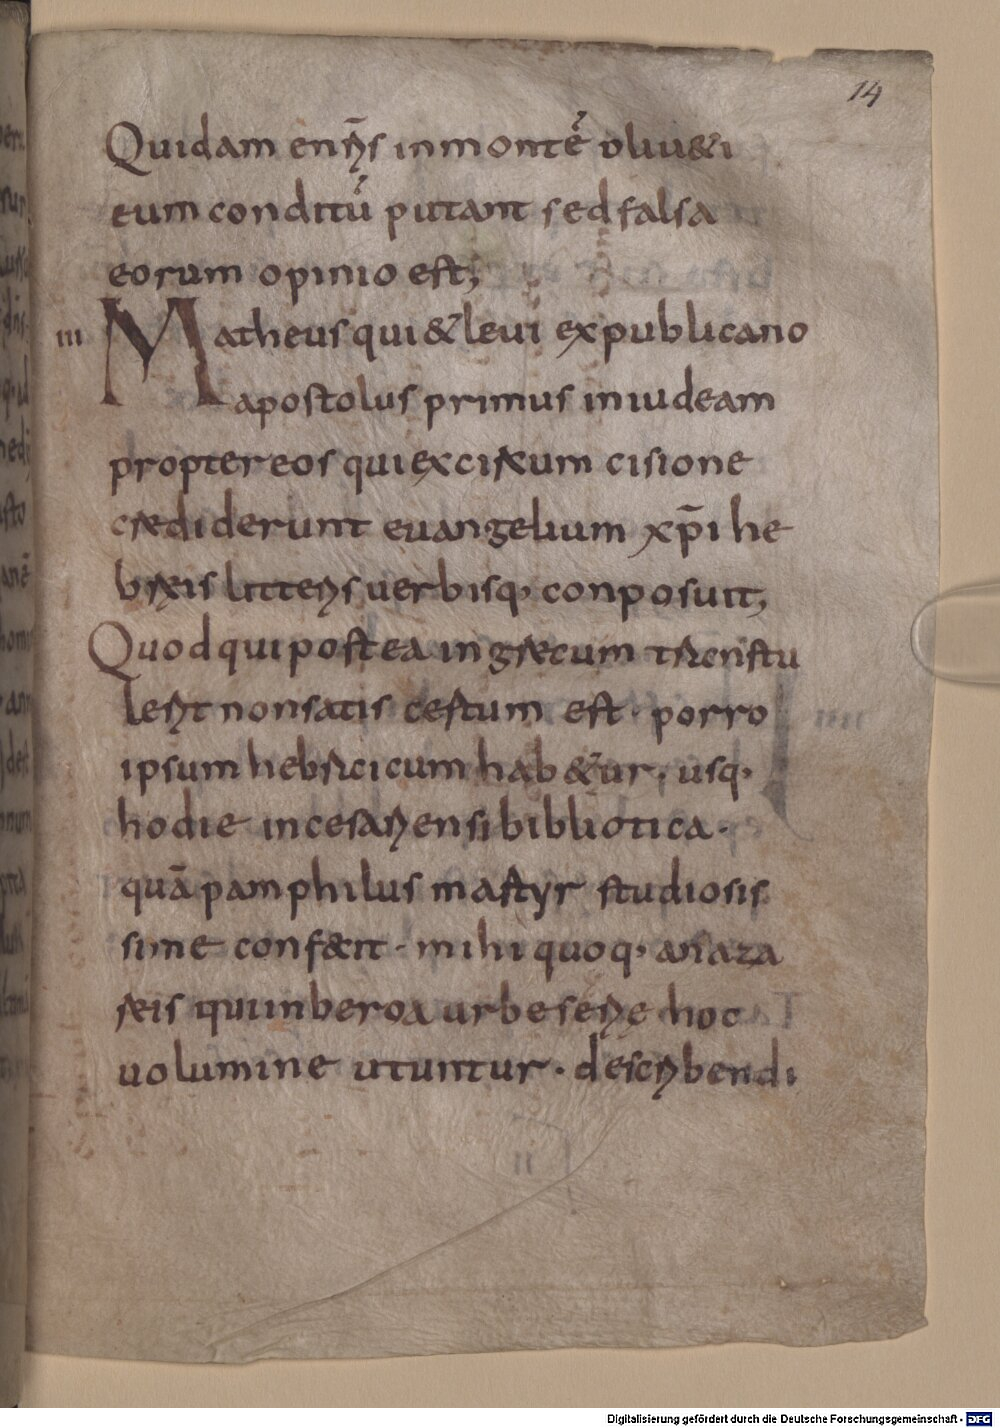 14
Quidam en nr̄is in montē oliu&i
eum conditū putant sed falsa
eorum opinio est;
III Matheus qui & leui ex publicano
apostolus primus in iudeam
propter eos qui ex circum cisione
crediderunt euangelium xp̄i he
breis litteris uerbisq· conposuit;
Quod qui postea in grecum transtu
lerit non satis certum est · porro
ipsum hebraicum hab&ur · usq·
hodie in cesariensi bibliotica ·
quā pamphilus martyr studiosis
sime conf&it · mihi quoq· a naza
reis qui in beroa urbe serie hoc
uolumine utuntur · describendi
Digitalisierung gefördert durch die Deutsche Forschungsgemeinschaft - DFG